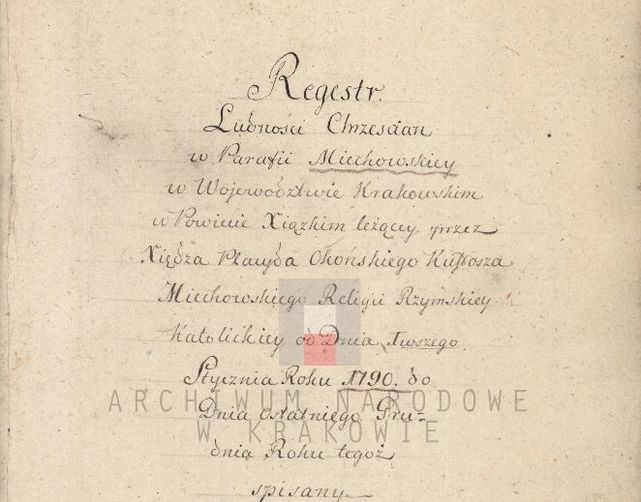 Regestr.
Ludności Chrzescian
w Parafii Miechowskiey
w Wojewodztwie Krakowskim
w Powicie Xiązkim leżącey przez
Xiędza Placyda Okońskiego Kustosza
Miechowskiego Religii Rzymskiey
Katolickiey od Dnia 1wszego
Stycznia Roku 1790. do
ARCHIWUM NARODOWE
Dnia ostatniego Gru-
W KRAKOWIE
dnia Roku tegoż
spisany